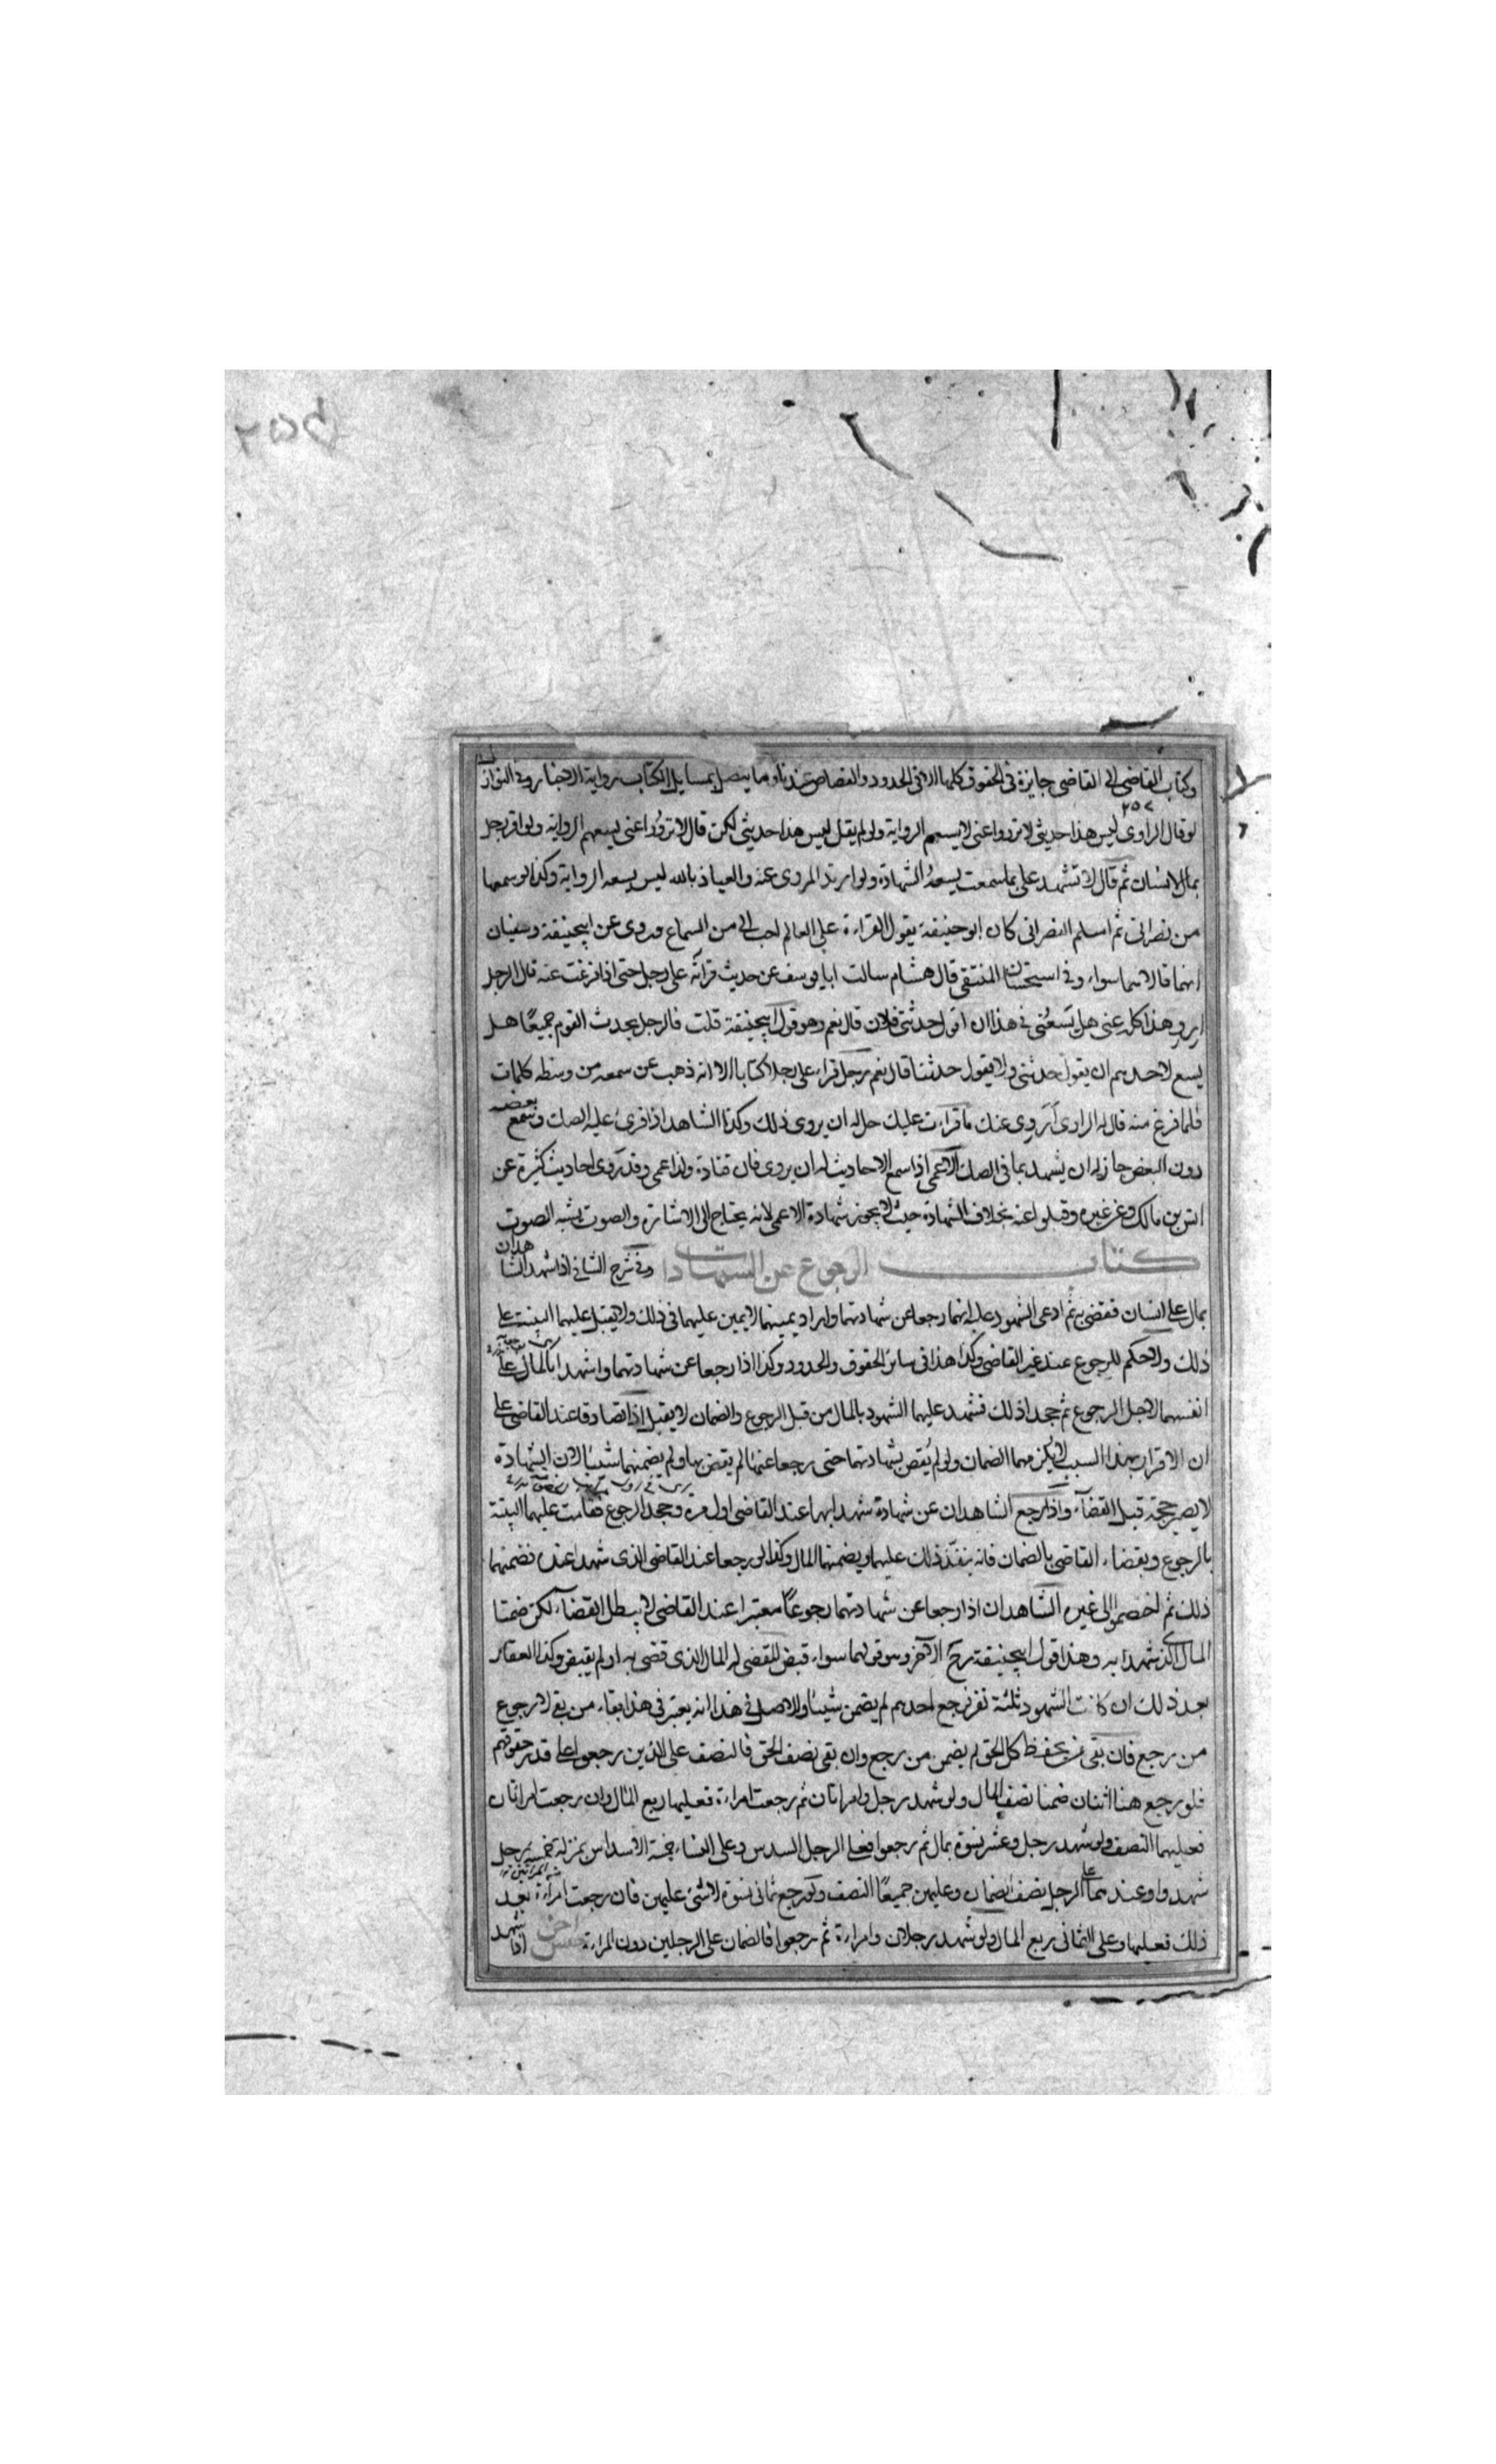 وكتاب القاضى الى القاضى جايزة فى الحقوق كلها الا فى الحدود والقصاص عندنا وما يتصل بمسايل الكتاب رواية الاخبار وفى النوازل
٢٥٧
لو قال الراوى ليس هذا حديثى لا ترووا عنى لا يسعهم الرواية ولو لم يقل ليس هذا حديثى لكن قال لا تروُوا عنى يسعهم الرواية ولو اقر رجل
بمال لانسان ثم قال لا تشهد على بما سمعت يسعهُ الشهادة ولو ارتد المروى عنه والعياذ بالله ليس يسعه الرواية وكذا لو سمعها
من نصرانى ثم اسلم النصرانى كان ابو حنيفة يقول القراءة على العالم احب الى من السماع وروى عن ابيحنيفة وسفيان
انهما قالا هما سواء وفى استحسان المنتقى قال هشام سالت ابا يوسف عن حديث قرأته على رجل حتى اذا فرغت عنه قال الرجل
اروِ هذا كله عنى هل يَسعُنى فى هذا ان اقول حدثنى فلان قال نعم وهو قول ابيحنيفة قلت فالرجل يحدث القوم جميعًا هل
يسع لاحدهم ان يقول حدثنى ولا يقول حدثنا قال نعم رجل قراء على رجل كتابا الا انه ذهب عن سمعه من وسطه كلمات
فلما فرغ منه قال له الراوى اَرَوِى عنك ما قراءت عليك حل له ان يروى ذلك وكذا الشاهد اذا قرئ عليه الصك وسمع بعضه
دون البعض جاز له ان يشهد بما فى الصك الاعمى اذا سمع الاحاديث له ان يروى فان قتادة ولد اعمى وقد رَوى احاديث كثيرة عن
انس بن مالك وعن غيره وقبلوا عنه بخلاف الشهادة حيث لا يجوز شهادة الاعمى لانه يحتاج الى الاشارة والصوت يشبه الصوت
كتاب الرجوع عن الشهادات وفى شرح الشافى اذا شهد الشاهدان
بمال على انسان فقضى به ثم ادعى الشهود عليه انهما رجعا عن شهادتهما واراد يمينهما لا يمين عليهما فى ذلك ولا يقبل عليهما البينة على
ذلك ولا حكم للرجوع عند غير القاضى وكذا هذا فى سائر الحقوق والحدود وكذا اذا رجعا عن شهادتهما واشهدا بالمال على
انفسهما لاجل الرجوع ثم جحد اذلك فشهد عليهما الشهود بالمال من قبل الرجوع والضمان لا يقبل اذا تصادقا عند القاضى على
ان الاقرار بهذا السبب لا يلزمهما الضمان ولو لم يُقض بشهادتهما حتى رجعا عنها لم يقض بها ولم يضمنهما شيئا لان الشهادة
لا يصير حجة قبل القضآء واذا رجع الشاهدان عن شهادة شهدا بها عند القاضى اول مرة وجحد الرجوع فقامت عليهما البينة
بالرجوع وبقضاء القاضى بالضمان فانه ينفّذ ذلك عليهما ويضمنهما المال وكذا لو رجعا عند القاضى الذى شهدا عنده فضمنهما
ذلك ثم اختصموا الى غيره الشاهدان اذا رجعا عن شهادتهما رجوعًا معتبرا عند القاضى لا يبطل القضاء لكن ضمنا
المال الذى شهدا به وهذا قول ابيحنيفة رح الآخر وهو قولهما سواء قبض المقضى له المال الذى قضى به او لم يقبض وكذا العقار
بعد ذلك ان كانت الشهود ثلثة نفر فرجع احدهم لم يضمن شيئا والاصل فى هذا انه يعتبر فى هذا بقاء من بقى لا رجوع
من رجع فان بقى من يحفظ كل الحق لم يضمن من رجع وان بقى نصف الحق فالنصف على الذين رجعوا على قدر حقوقهم
فلو رجع هنا اثنان ضمنا نصف المال ولو شهد رجل وامراتان ثم رجعت امراءة فعليها ربع المال وان رجعت امراتان
فعليهما النصف ولو شهد رجل وعشر نسوة بمال ثم رجعوا فعلى الرجل السدس وعلى النساء خمسة الاسداس بمنزلة خمسة رجل
شهدوا وعندهما على الرجل نصف الضمان وعليهن جميعًا النصف ولو رجع ثمانى نسوة لا شئ عليهن فان رجعت امراءة بعد
ذلك فعليها وعلى الثمانى ربع المال ولو شهد رجلان وامراءة ثم رجعوا فالضمان على الرجلين دون المراءة